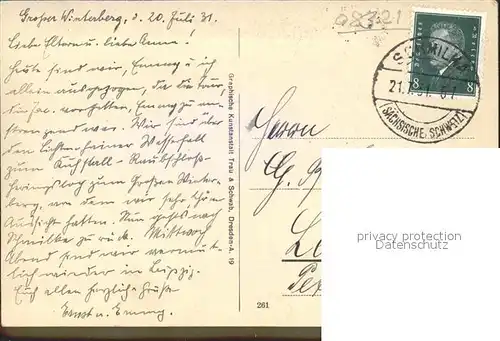 Großer Winterberg, d. 20. Juli 31.
Liebe Eltern u. liebe Anne!
Heute sind wir, Emmy u. ich
allein ausgezogen, da die Tour,
die Jac. vorhatten, Emmy zu an-
strengend war. Wir sind über
den Lichtenhainer Wasserfall
zum Kuhstall - Raubschloß -
zum Großen Winter-
berg, von dem wir sehr schöne
Aussicht hatten. Nun geht's nach
Schmilka zurück. Mittwoch
Abend sind wir vermut-
lich wieder in Leipzig.
Euch allen herzliche Grüße
Ernst u. Emmy.
Graphische Kunstanstalt Trau & Schwab, Dresden-A. 19
261
08321
SCHMILKA
21.7.31.
(SÄCHSISCHE SCHWEIZ)
8 8
Herrn
privacy protection
Datenschutz